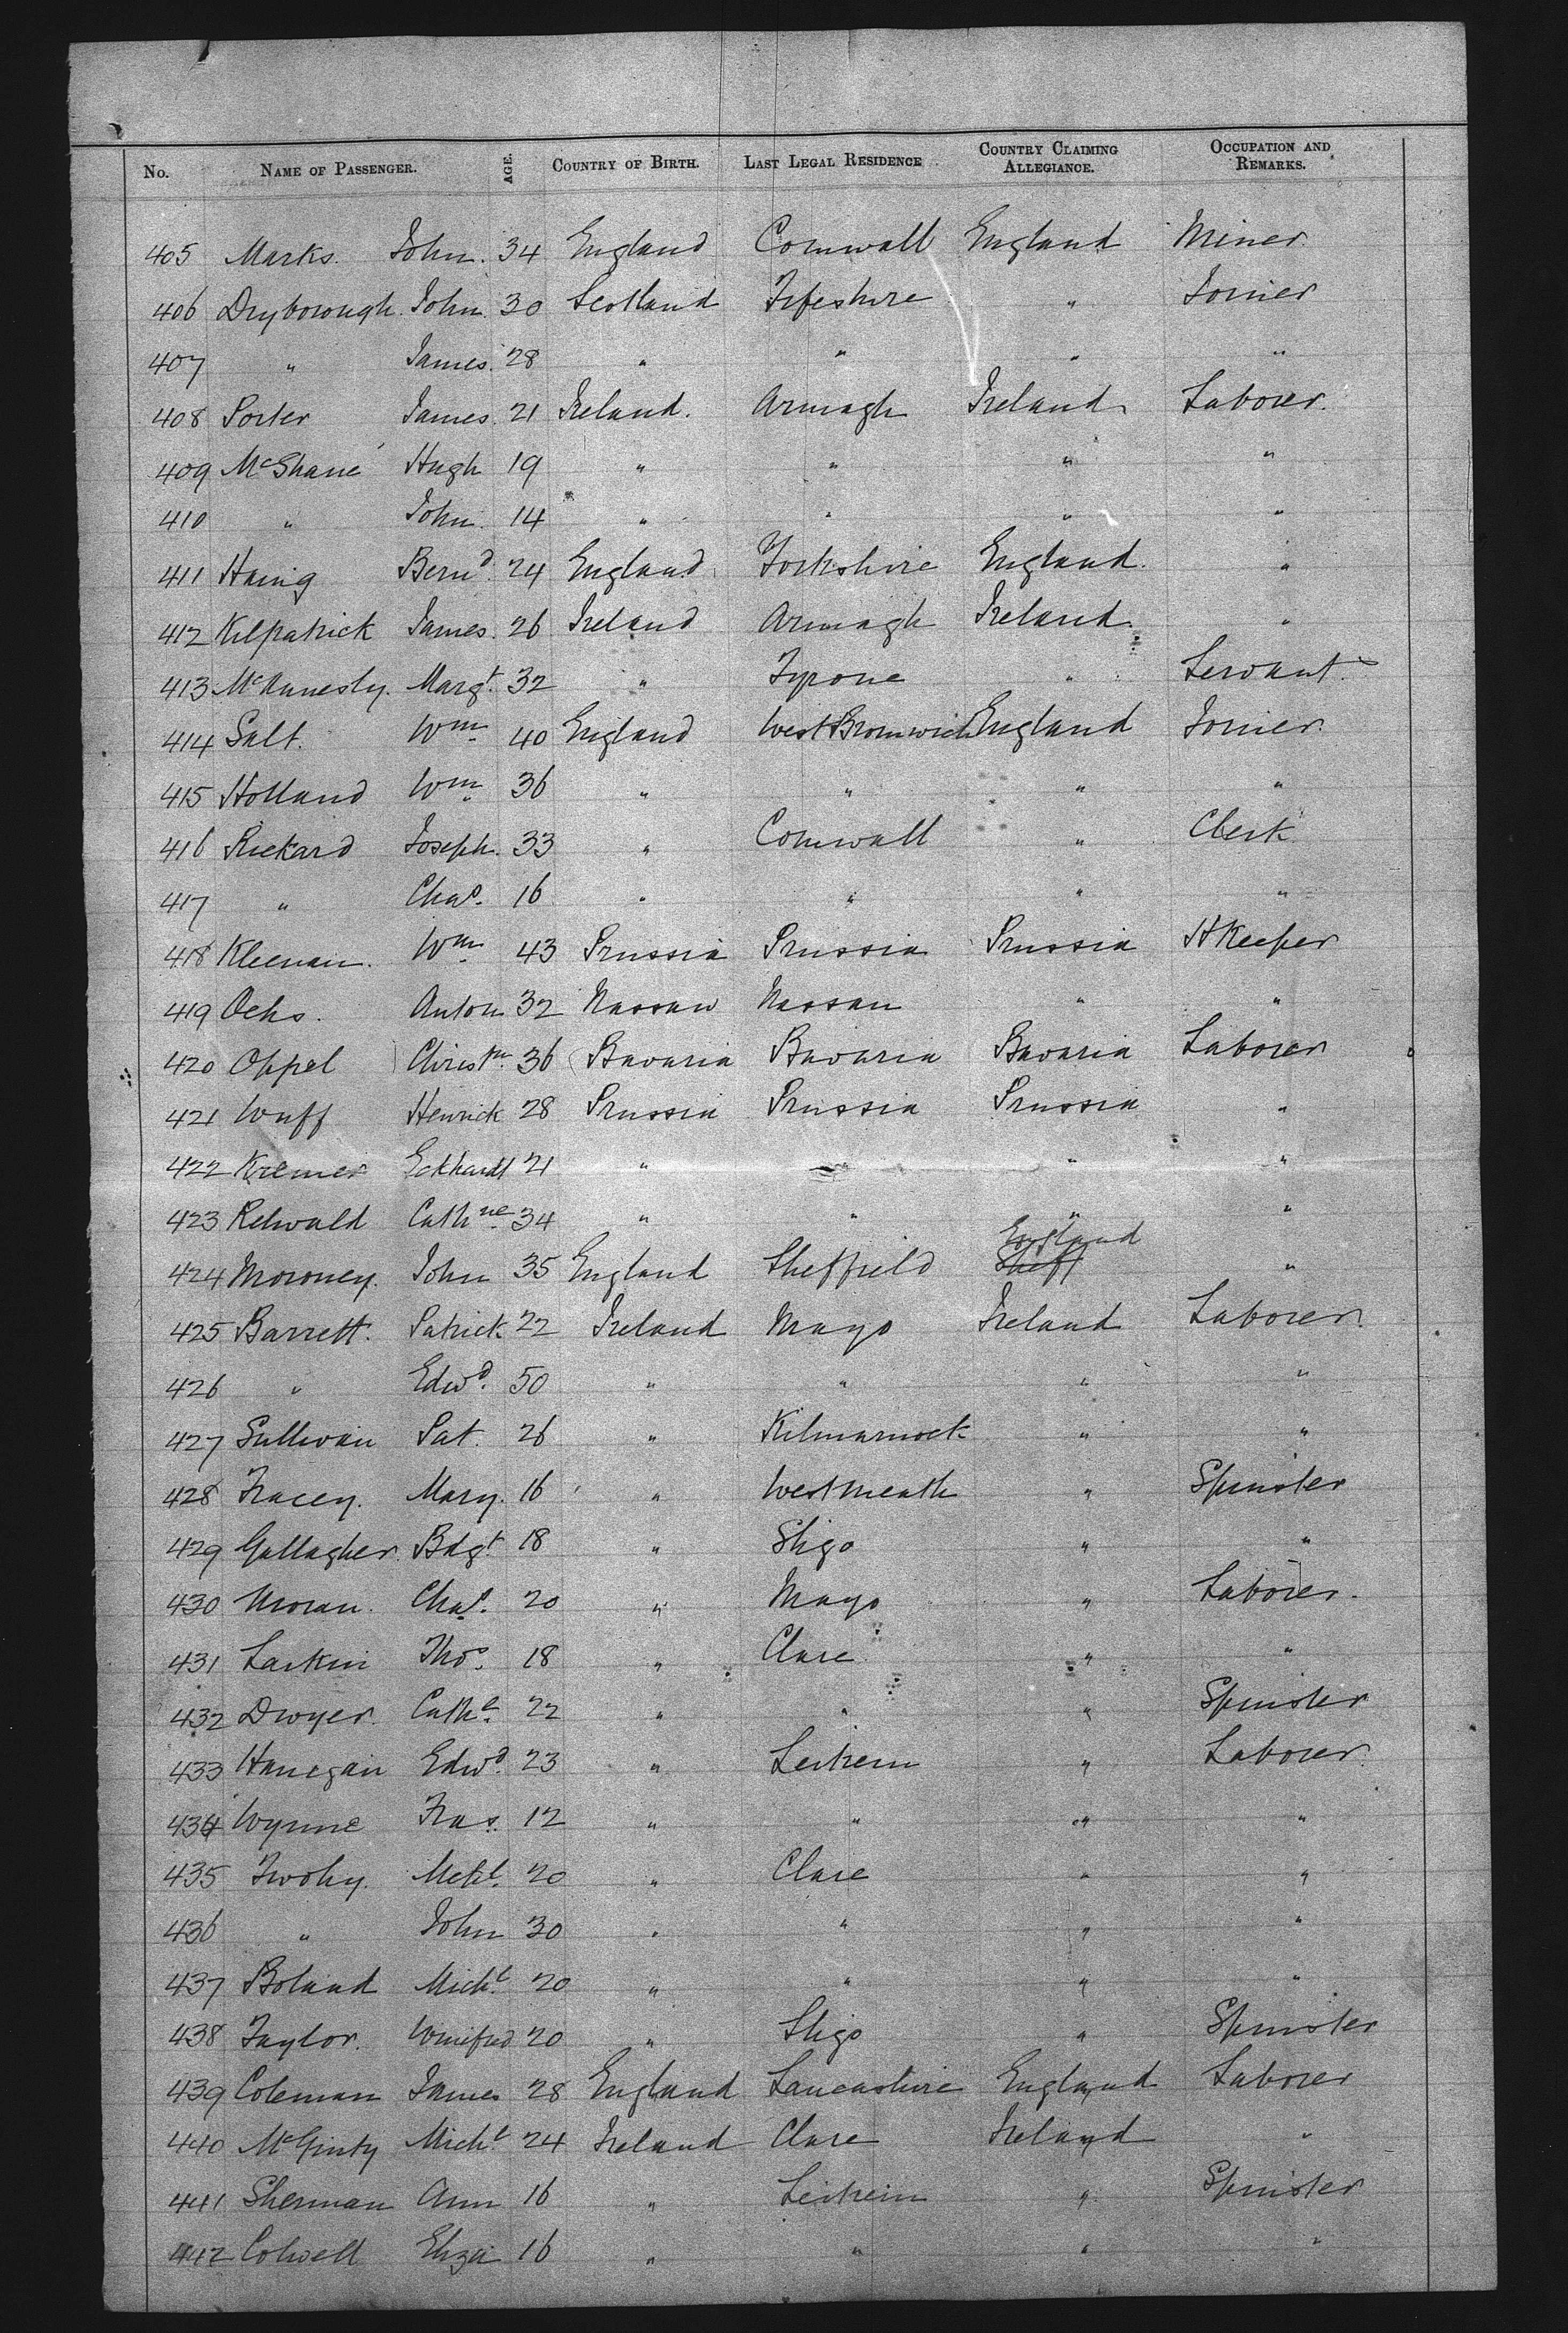 No. NAME OF PASSENGER. AGE. COUNTRY OF BIRTH. LAST LEGAL RESIDENCE COUNTRY CLAIMING ALLEGIANCE. OCCUPATION AND REMARKS.
405 Marks. John. 34 England Cornwall England Miner
406 Dryborough. John. 30 Scotland Fifeshire " Joiner
407 " James. 28 " " " "
408 Porter James. 21 Ireland. Armagh Ireland Laborer.
409 McShane Hugh 19 " " " "
410 " John. 14 " " " "
411 Haing Bernd. 24 England Yorkshire England. "
412 Kilpatrick James. 26 Ireland Armagh Ireland. "
413 Margt. 32 " Tyrone " Servant.
414 Salt. Wm 40 England West Bromwich England Joiner.
415 Holland Wm 36 " " " "
416 Rickard Joseph. 33 " Cornwall " Clerk
417 " Chas. 16 " " " "
418 Kleenan. Wm 43 Prussia Prussia Prussia HKeeper
419 Ochs. Anton 32 Nassau Nassau " "
420 Oppel Christn. 36 Bavaria Bavaria Bavaria Laborer
421 Wuff Henrick 28 Prussia Prussia Prussia "
422 Kremer Eckhardt 21 " " " "
423 Rehwald Cathne 34 " " " "
424 Moroney. John 35 England Sheffield Sheff England "
425 Barrett. Patrick 22 Ireland Mayo Ireland Laborer.
426 " Edwd. 50 " " " "
427 Sullivan Pat. 26 " Kilmarnock " "
428 Tracey. Mary. 16 " Westmeath " Spinster
429 Gallagher. Bdgt 18 " Sligo " "
430 Moran. Chas. 20 " Mayo " Laborer.
431 Larkin Thos. 18 " Clare " "
432 Dwyer. Cathe. 22 " " " Spinster
433 Hanegan Edwd. 23 " Leitrim " Laborer.
434 Wynne Fras. 12 " " " "
435 Twohy. Mchl. 20 " Clare " "
436 " John 30 " " " "
437 Boland Michl. 20 " " " "
438 Taylor. Winifred 20 " Sligo " Spinster
439 Coleman James 28 England Lancashire England Laborer
440 McGinty Michl 24 Ireland Clare Ireland "
441 Sherman Ann 16 " Leitrim " Spinster
442 Colwell Eliza 16 " " " "